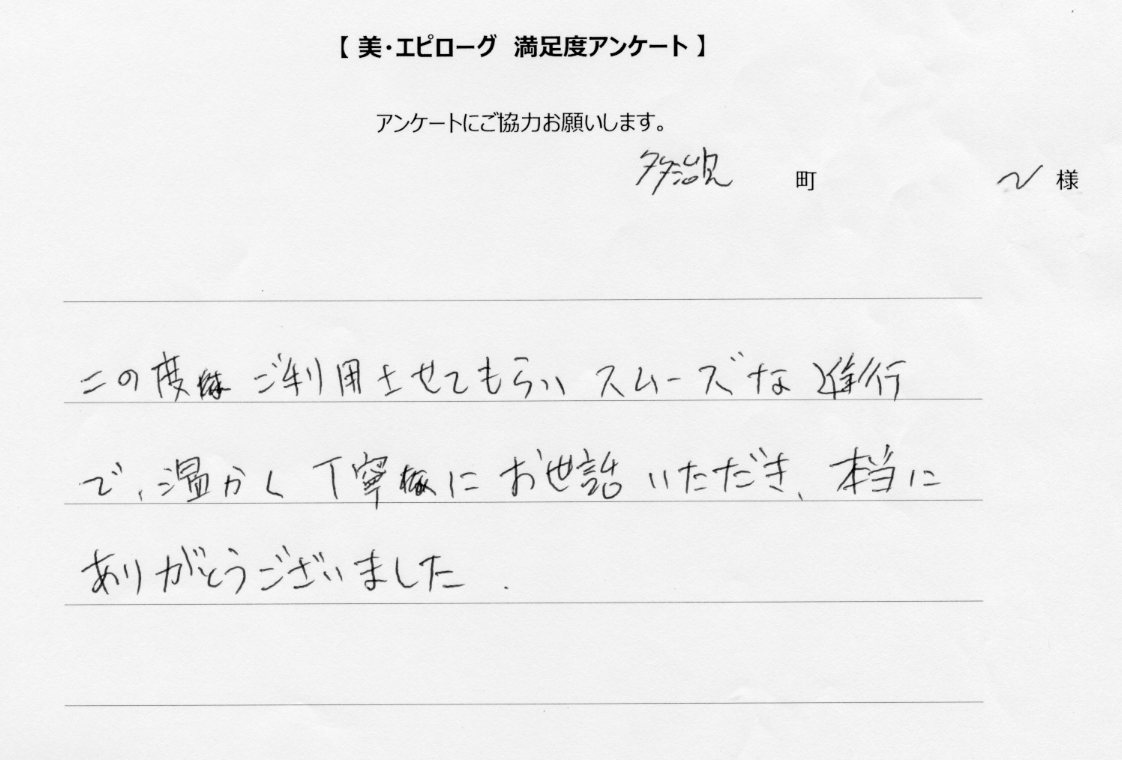 【 美・エピローグ 満足度アンケート 】
アンケートにご協力お願いします。
多治見 町 様
この度は ご利用させてもらい スムーズな 進行
で、温かく 丁寧に お世話 いただき、本当に
ありがとうございました.